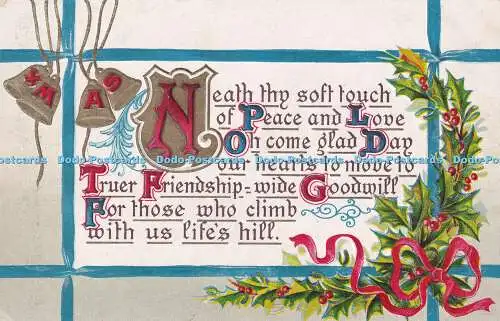 XMAS
Neath thy soft touch
of Peace and Love
Oh come glad Day
Postcards Dodo-Postcards Dodo-Postcards Dodo-Postcards Dodo-Postcards
our hearts to move to
Truer Friendship-wide Goodwill
For those who climb
with us life's hill.